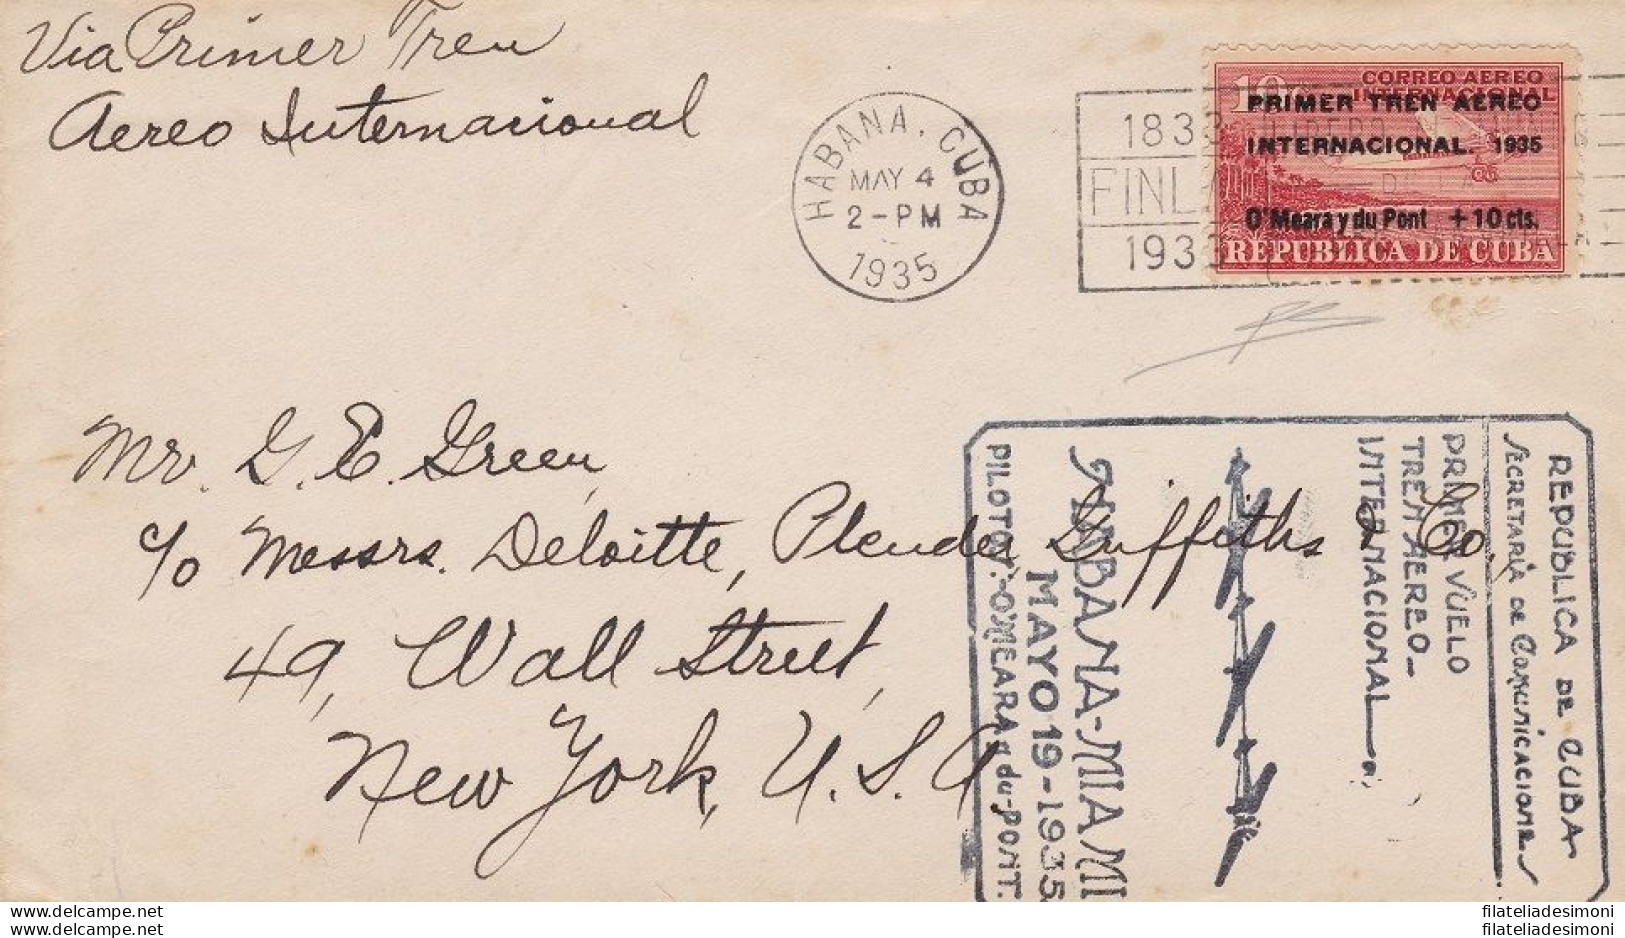 Via Primer Tren
Aereo Internacional
HABANA, CUBA
MAY 4
2-PM
1935
1833
FINL
1933
10
CORREO AEREO
INTERNACIONAL
PRIMER TREN AEREO
INTERNACIONAL. 1935
O'Meara y du Pont + 10 cts.
REPUBLICA DE CUBA
Mr. G. E. Green,
c/o Messrs. Deloitte, Plender Griffiths & Co.,
49, Wall Street,
New York, U. S. A.
REPUBLICA DE CUBA
SECRETARIA DE COMUNICACIONES
PRIMER VUELO
TREN AEREO-
INTERNACIONAL
HABANA-MIAMI
MAYO 19-1935
PILOTOS:-O'MEARA y du-PONT.
filateliadesimoni
filateliadesimoni